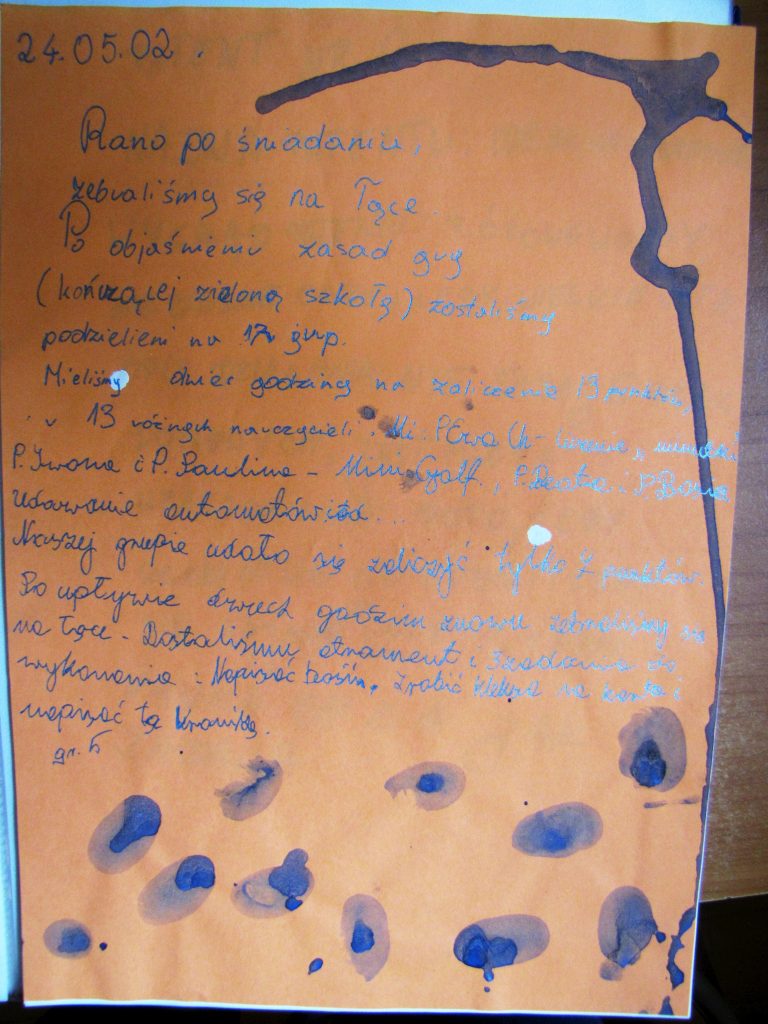 24.05.02.
Rano po śniadaniu,
zebraliśmy się na Łące.
Po objaśnieniu zasad gry
(kończącej zieloną szkołę) zostaliśmy
podzieleni na grup.
Mieliśmy dwie godziny na zaliczenie 13 punktów,
u 13 różnych nauczycieli. P. Ewa Ch-
P. Iwona i P. Paulina - Mini Golf., P. Beata i P. Bożena
udawanie
Naszej grupie udało się zaliczyć tylko 7 punktów.
Po upływie dwóch godzin znowu zebraliśmy się
na Łące. Dostaliśmy atrament i 3 zadania do
wykonania: Napisać baśń, Zrobić kleksa na kartce i
napisać tą kronikę.
gr. 5